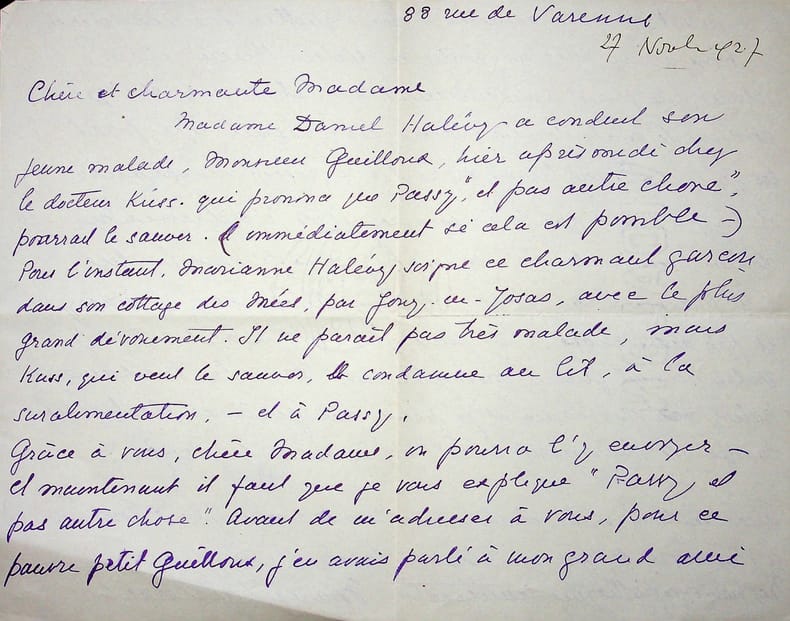 88 rue de Varenne
27 Novb. 927
Chère et charmante Madame
Madame Daniel Halévy a conduit son
jeune malade, Monsieur Guilloux, hier après midi chez
le docteur Küss. qui prononça que "Passy", et pas autre chose",
pourrait le sauver. (immédiatement si cela est possible -)
Pour l'instant, Marianne Halévy soigne ce charmant garçon
dans son cottage des Mées, par Jouy-en-Josas, avec le plus
grand dévouement. Il ne paraît pas très malade, mais
Kuss, qui veut le sauver, le condamne au lit, à la
suralimentation, - et à Passy.
Grâce à vous, chère Madame, on pourra l'y envoyer -
et maintenant il faut que je vous explique "Passy et
pas autre chose". Avant de m'adresser à vous, pour ce
pauvre petit Guilloux, j'en avais parlé à mon grand ami